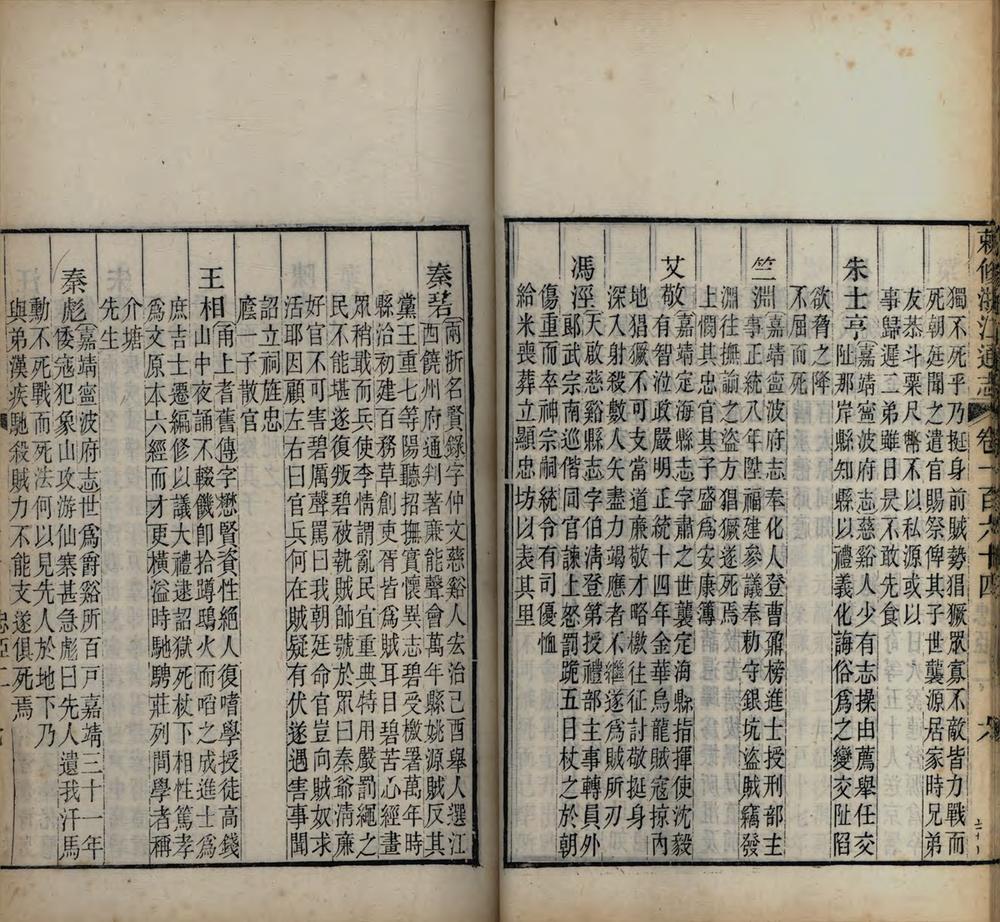 敕修浙江通志 卷一百六十四 六
獨不死乎乃挺身前賊勢猖獗眾寡不敵皆力戰而
死朝廷聞之遣官賜祭俾其子世襲源居家時兄弟
友恭斗粟尺幣不以私源或以
事歸遲二弟雖日昃不敢先食
朱士亨嘉靖寧波府志慈谿人少有志操由薦舉任交
阯那岸縣知縣以禮義化誨俗爲之變交阯陷
欲脅之降
不屈而死
竺淵嘉靖寧波府志奉化人登曹鼐榜進士授刑部主
事正統八年陞福建參議奉勑守銀坑盜賊竊發
淵往撫諭之盜方猖獗遂死焉
上憫其忠官其子盛爲安康簿
艾敬嘉靖定海縣志字肅之世襲定海縣指揮使沈毅
有智泣政嚴明正統十四年金華烏龍賊寇掠內
地猖獗不可支當道廉敬才略檄往征討敬挺身
深入射殺數人矢盡力竭應者不繼遂爲賊所刃
馮涇天啟慈谿縣志字伯淸登第授禮部主事轉員外
郎武宗南巡偕同官諫上怒罰跪五日杖之於朝
傷重而卒神宗嗣統令有司優恤
給米喪葬立顯忠坊以表其里
秦碧兩浙名賢錄字仲文慈谿人宏治己酉舉人選江
西饒州府通判著廉能聲會萬年縣姚源賊反其
黨王重七等陽聽招撫實懷異志碧受檄署萬年時
縣治初建百務草創吏胥皆爲賊耳目碧苦心經畫
眾稍戢而兵使李情謂亂民宜重典特用嚴罰繩之
民不能堪遂復叛碧被執賊帥號於眾曰秦爺淸廉
好官不可害碧厲聲罵曰我朝廷命官豈向賊奴求
活耶因顧左右曰官兵何在賊疑有伏遂遇害事聞
詔立祠旌忠
廕一子散官
王相甬上耆舊傳字懋賢資性絕人復嗜學授徒高錢
山中夜誦不輟饑卽拾蹲鴟火而啗之成進士爲
庶吉士遷編修以議大禮逮詔獄死杖下相性篤孝
爲文原本六經而才更橫溢時馳騁莊列間學者稱
介塘
先生
秦彪嘉靖寧波府志世爲爵谿所百戸嘉靖三十一年
倭寇犯象山攻游仙寨甚急彪曰先人遺我汗馬
勳不死戰而死法何以見先人於地下乃
與弟漢疾馳殺賊力不能支遂俱死焉
忠臣二